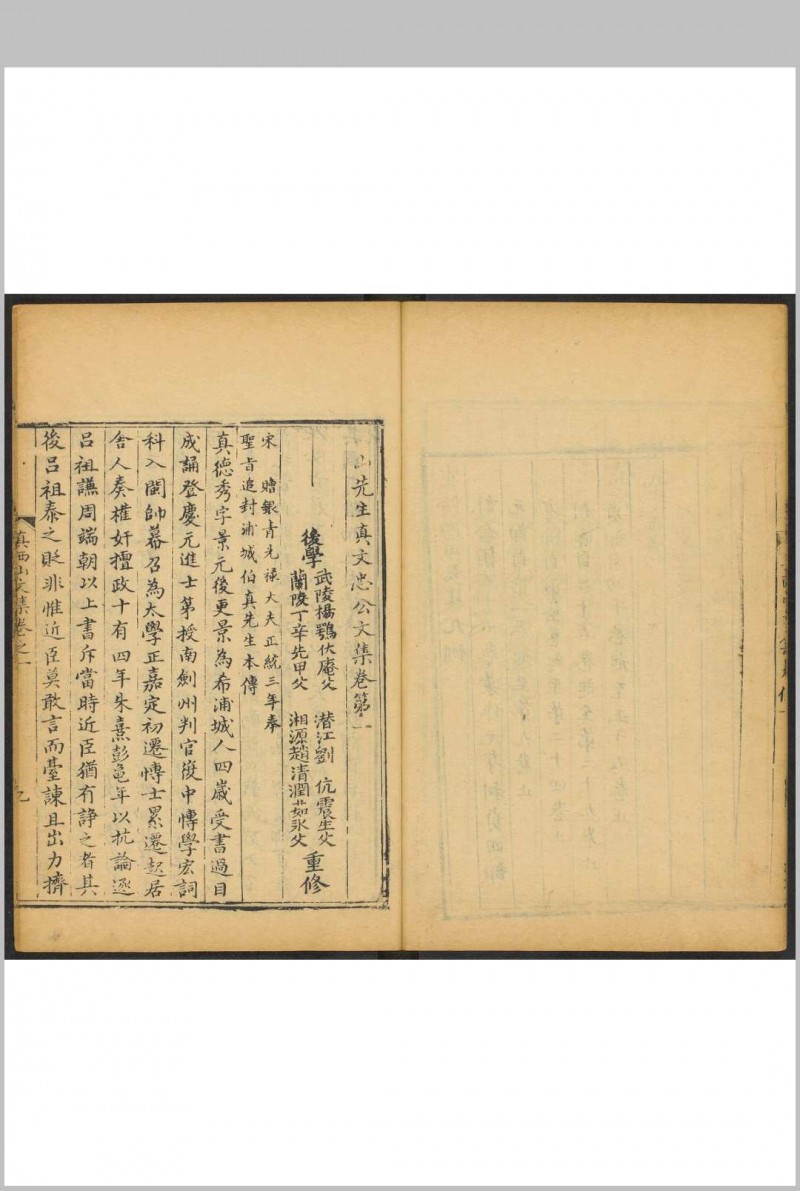 山先生真文忠公文集卷第一
後學
武陵楊鶚伏庵父
潛江劉伉震生父
蘭陵丁辛先甲父
湘源趙清潤茹氷父
重修
宋贈銀青光祿大夫正統三年奉
聖旨追封浦城伯真先生本傳
真德秀字景元後更景為希浦城人四歲受書過目
成誦登慶元進士第授南劍州判官復中博學宏詞
科入閩帥幕召為太學正嘉定初遷博士累遷起居
舍人奏權奸擅政十有四年朱熹彭龜年以抗論逐
呂祖謙周端朝以上書斥當時近臣猶有諍之者其
後呂祖泰之貶非惟近臣莫敢言而臺諫且出力擠
真西山文集卷之一